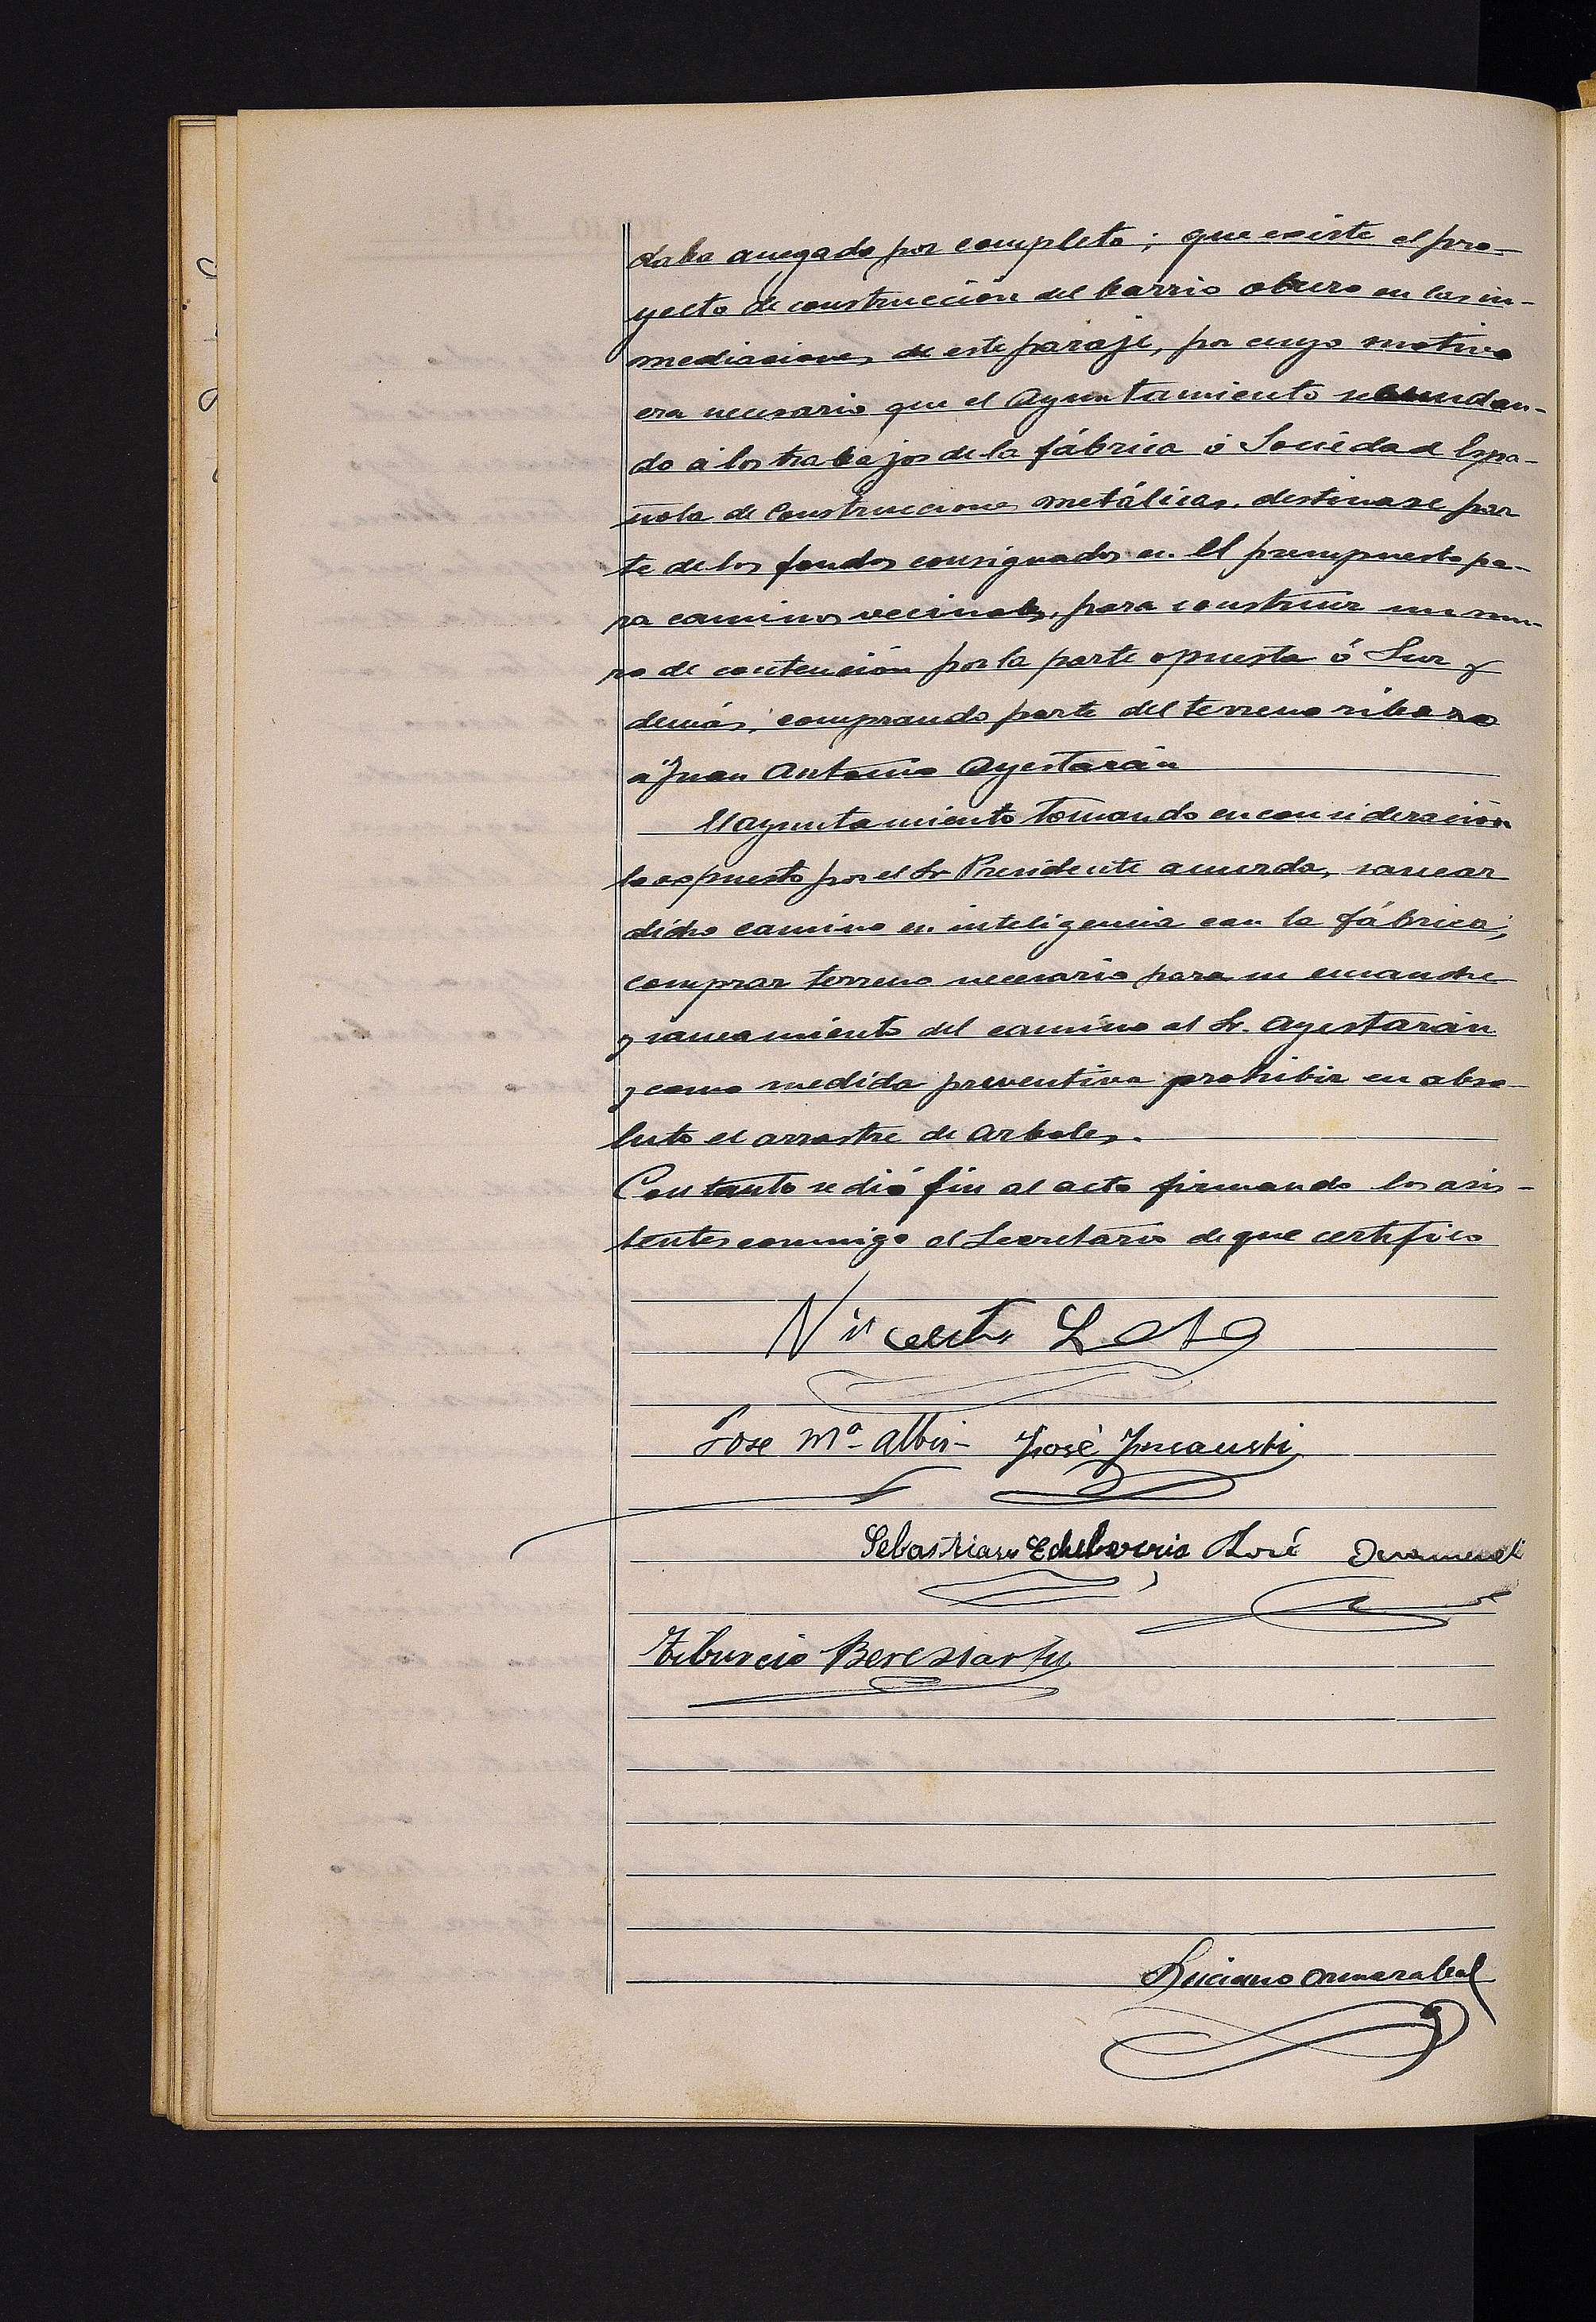 daba anegado por completo; que existe el pro-
yecto de construcción del barrio obrero en las in-
mediaciones de este paraje, por cuyo motivo
era necesario que el Ayuntamiento secundan-
do á los trabajos de la fábrica ó Sociedad Espa-
ñola de Construcciones metálicas, destinase par
te de los fondos consignados en el presupuesto pa-
ra caminos vecinales, para construir un mu-
ro de contención por la parte opuesta ó Sur y
demás, comprando parte del terreno ribero
a Juan Antonio Ayestarán
El ayuntamiento tomando en consideración
lo expuesto por el Sr Presidente acuerda, sanear
dicho camino en inteligencia con la fábrica;
comprar terreno necesario para su ensanche
y saneamiento del camino al Sr. Ayestarán
y como medida preventiva prohibir en abso-
luto el arrastre de arboles.
Con tanto se dió fin al acto firmando los asis-
tentes conmigo el Secretario de que certifico
Vicente Lasa
Jose Mª Albis José Ynsausti
Sebastian Echeberria José
Tiburcio Beresiartu
Luciano Ormazabal